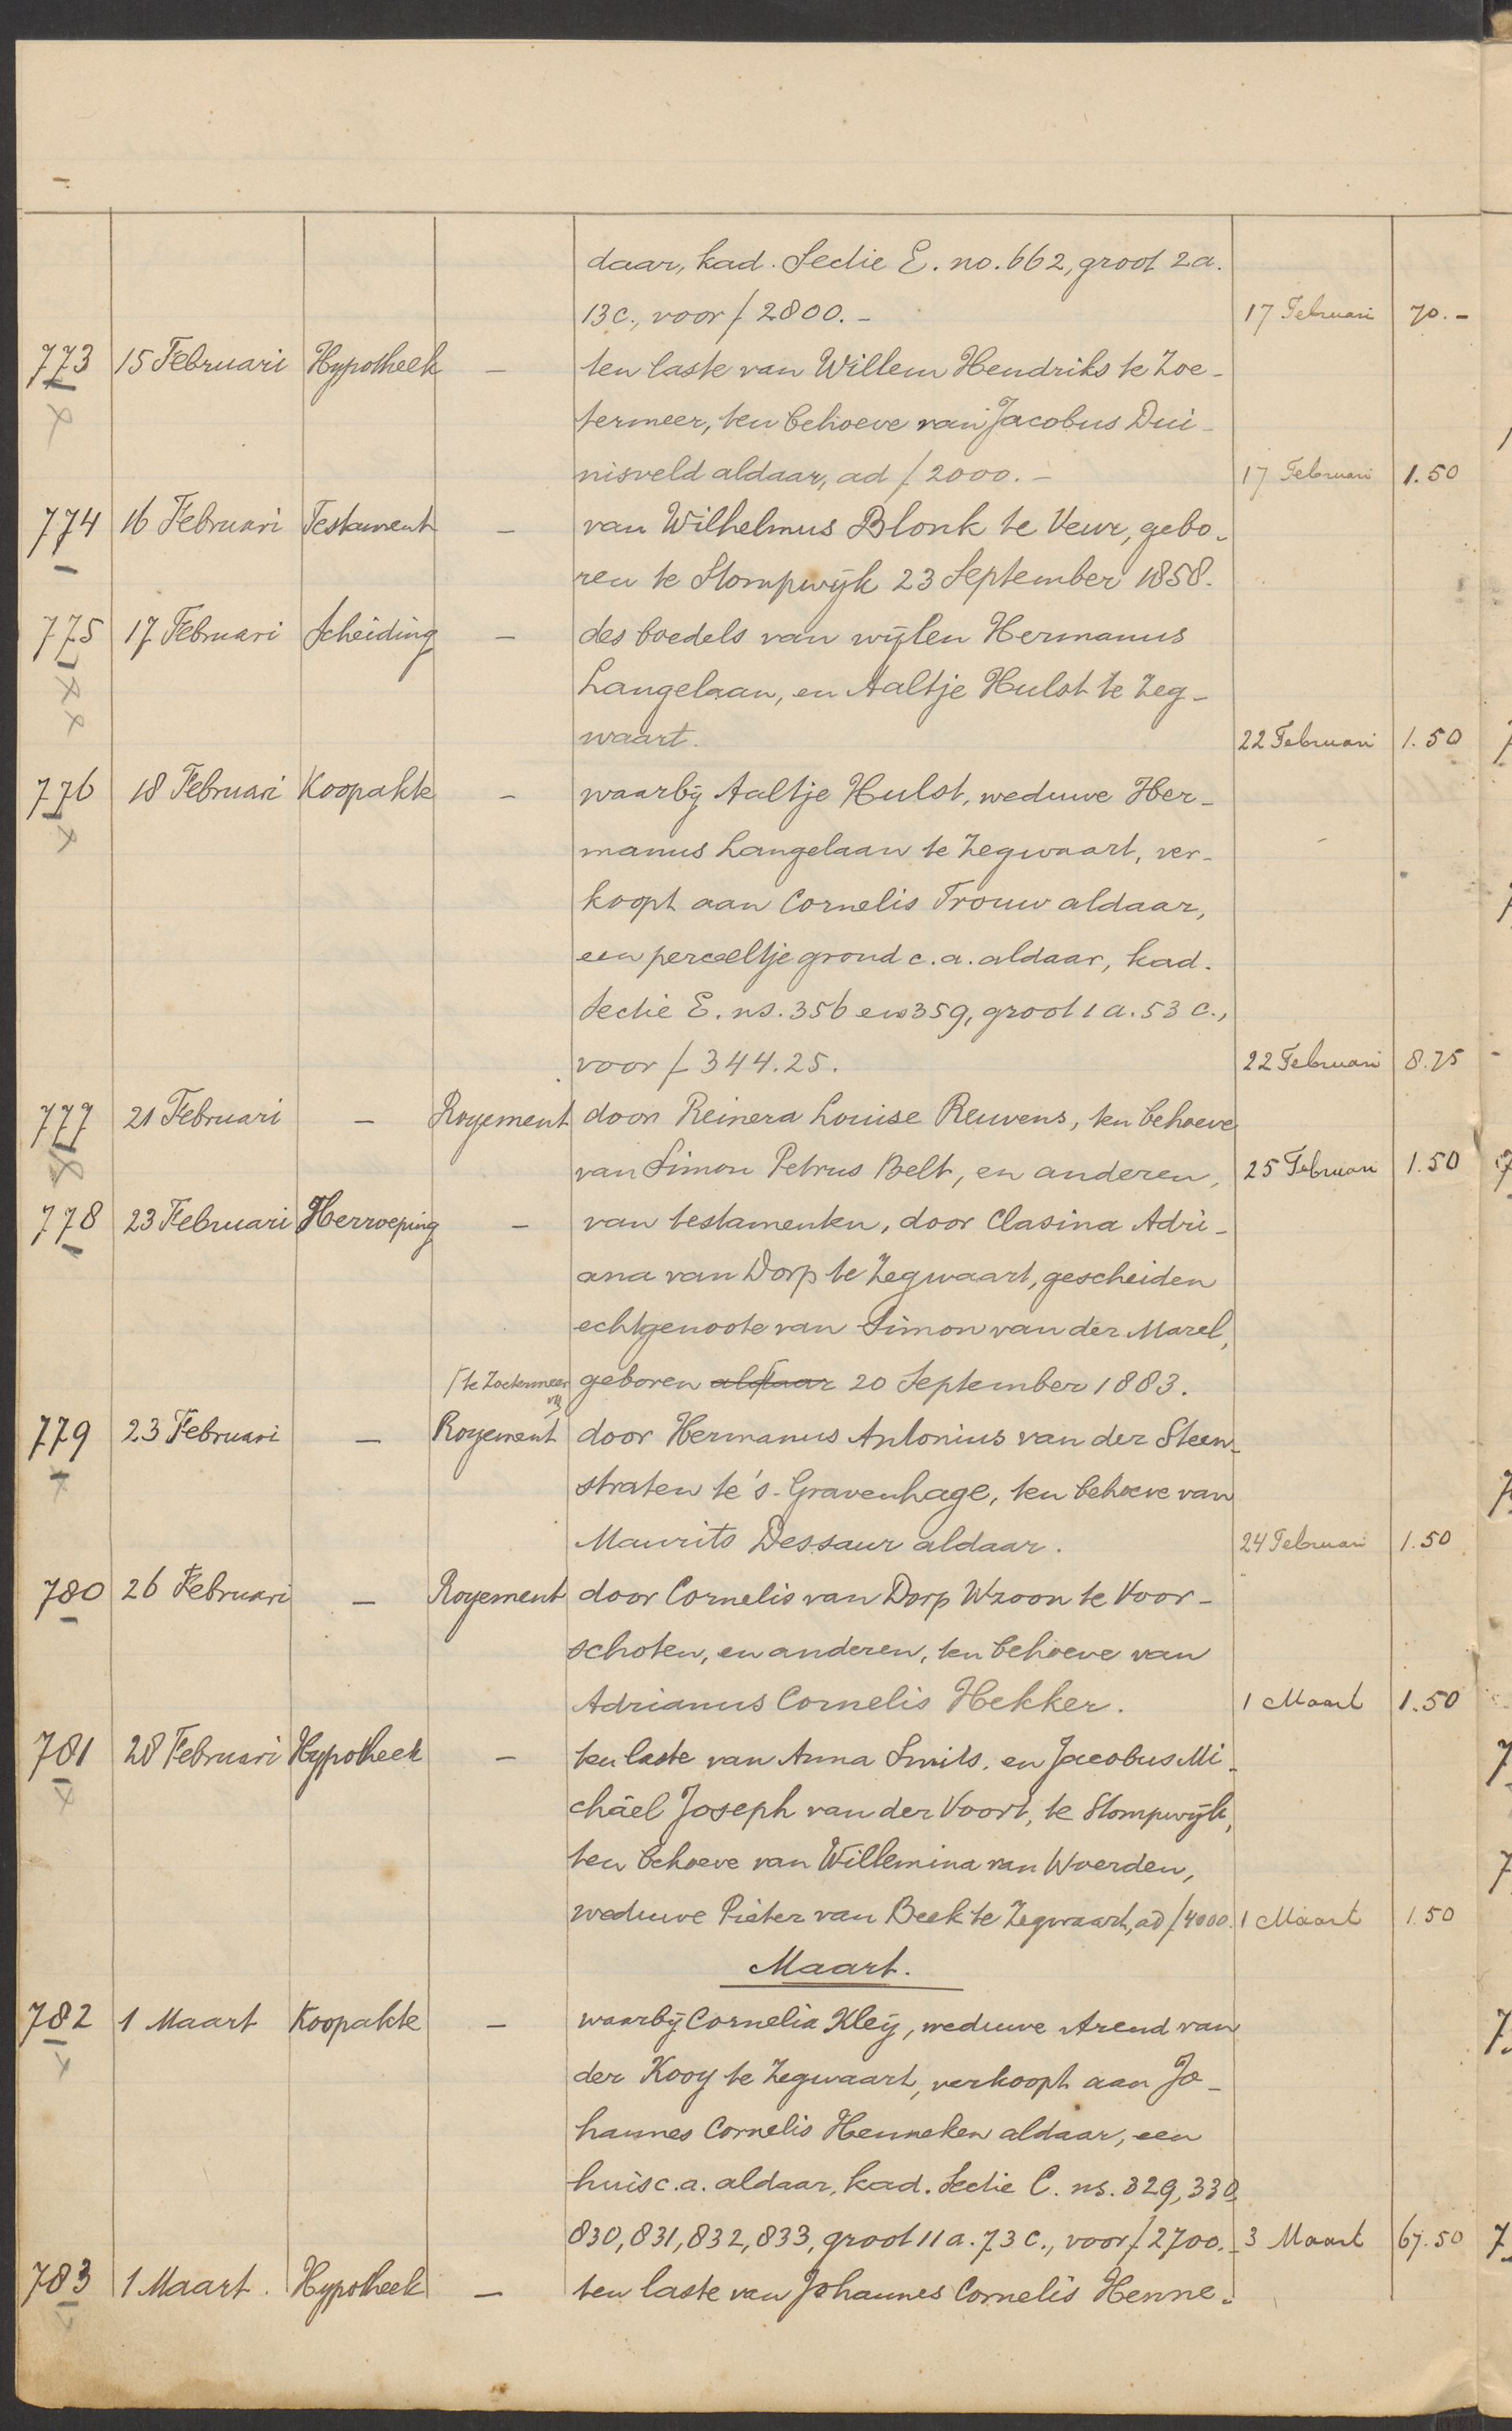 daar, kad. Sectie E. no. 662, groot 2a.
13 c., voor ƒ 2800.- 17 Februari 70.-
773 15 Februari Hypotheek - ten laste van Willem Hendriks te Zoe-
termeer, ten behoeve van Jacobus Dui-
nisveld aldaar, ad ƒ 2000.- 17 Februari 1.50
774 16 Februari Testament - van Wilhelmus Blonk te Veur, gebo-
ren te Stompwijk 23 September 1858.
775 17 Februari Scheiding - des boedels van wijlen Hermanus
Langelaan, en Aaltje Hulst te Zeg-
waart. 22 Februari 1.50
776 18 Februari Koopakte - waarbij Aaltje Hulst, weduwe Her-
manus Langelaan te Zegwaart, ver-
koopt aan Cornelis Trouw aldaar,
een perceeltje grond c.a. aldaar, kad.
Sectie E. ns. 356 en 359, groot 1 a. 53 c.,
voor ƒ 344.25. 22 Februari 8.75
777 21 Februari - Royement door Reinera Louise Reuvens, ten behoeve
van Simon Petrus Belt, en anderen, 25 Februari 1.50
778 23 Februari Herroeping - van testamenten, door Clasina Adri-
ana van Dorp te Zegwaart, gescheiden
echtgenoote van Simon van der Marel,
ƒ te Zoetermeer geboren aldaar 20 September 1883.
779 23 Februari - Royement door Hermanus Antonius van der Steen-
straten te 's-Gravenhage, ten behoeve van
Maurits Dessaur aldaar. 24 Februari 1.50
780 26 Februari - Royement door Cornelis van Dorp Wzoon te Voor-
schoten, en anderen, ten behoeve van
Adrianus Cornelis Hekker. 1 Maart 1.50
781 28 Februari Hypotheek - ten laste van Anna Smits, en Jacobus Mi-
chäel Joseph van der Voort, te Stompwijk,
ten behoeve van Willemina van Woerden,
weduwe Pieter van Beek te Zegwaart, ad ƒ 4000. 1 Maart 1.50
Maart.
782 1 Maart Koopakte - waarbij Cornelia Kleij, weduwe Arend van
der Kooy te Zegwaart, verkoopt aan Jo-
hannes Cornelis Henneken aldaar, een
huis c.a. aldaar, kad. Sectie C. ns. 329, 330,
830, 831, 832, 833, groot 11 a. 73 c., voor ƒ 2700.- 3 Maart 67.50
783 1 Maart. Hypotheek - ten laste van Johannes Cornelis Henne-